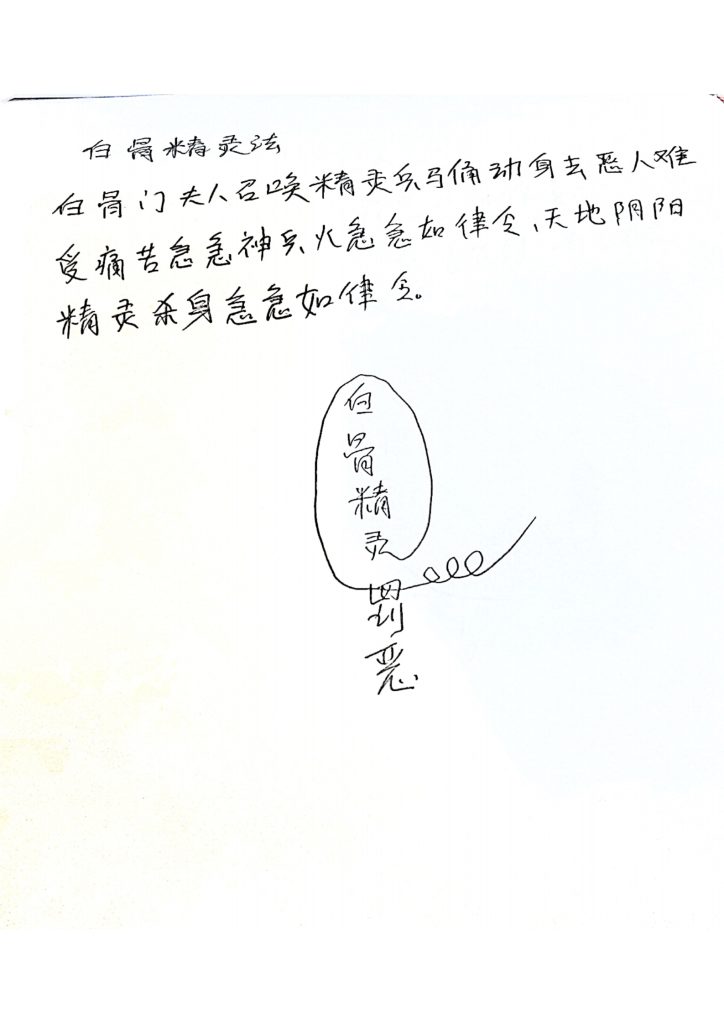 白骨精灵法
白骨门夫人召唤精灵兵马俑动身去恶人难
受痛苦急急神兵火急急如律令、天地阴阳
精灵杀身急急如律令。
白
骨
精
灵
罚
恶